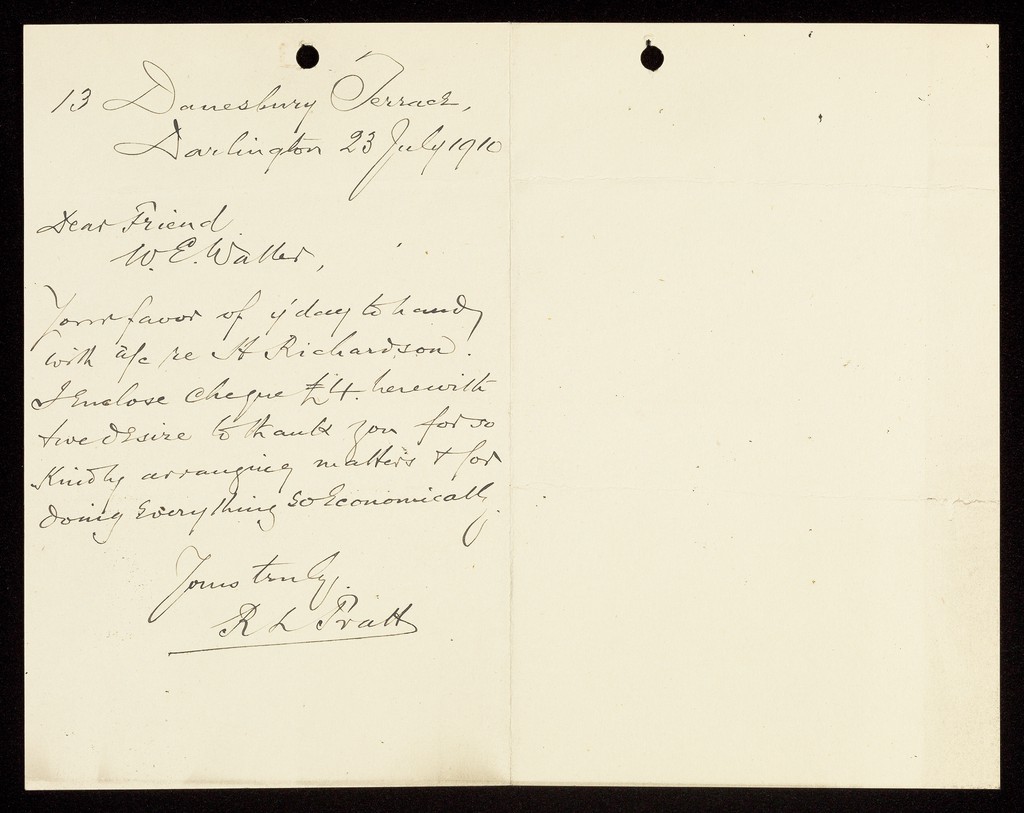 13 Danesbury Terrace,
Darlington 23 July 1910
Dear Friend
W. E. Waller,
Your favor of y'day to hand
with a/c re H Richardson.
I Enclose Cheque £4. herewith
+ we desire to thank you for so
Kindly arranging matters + for
doing Everything so Economically.
Yours truly.
R L Pratt